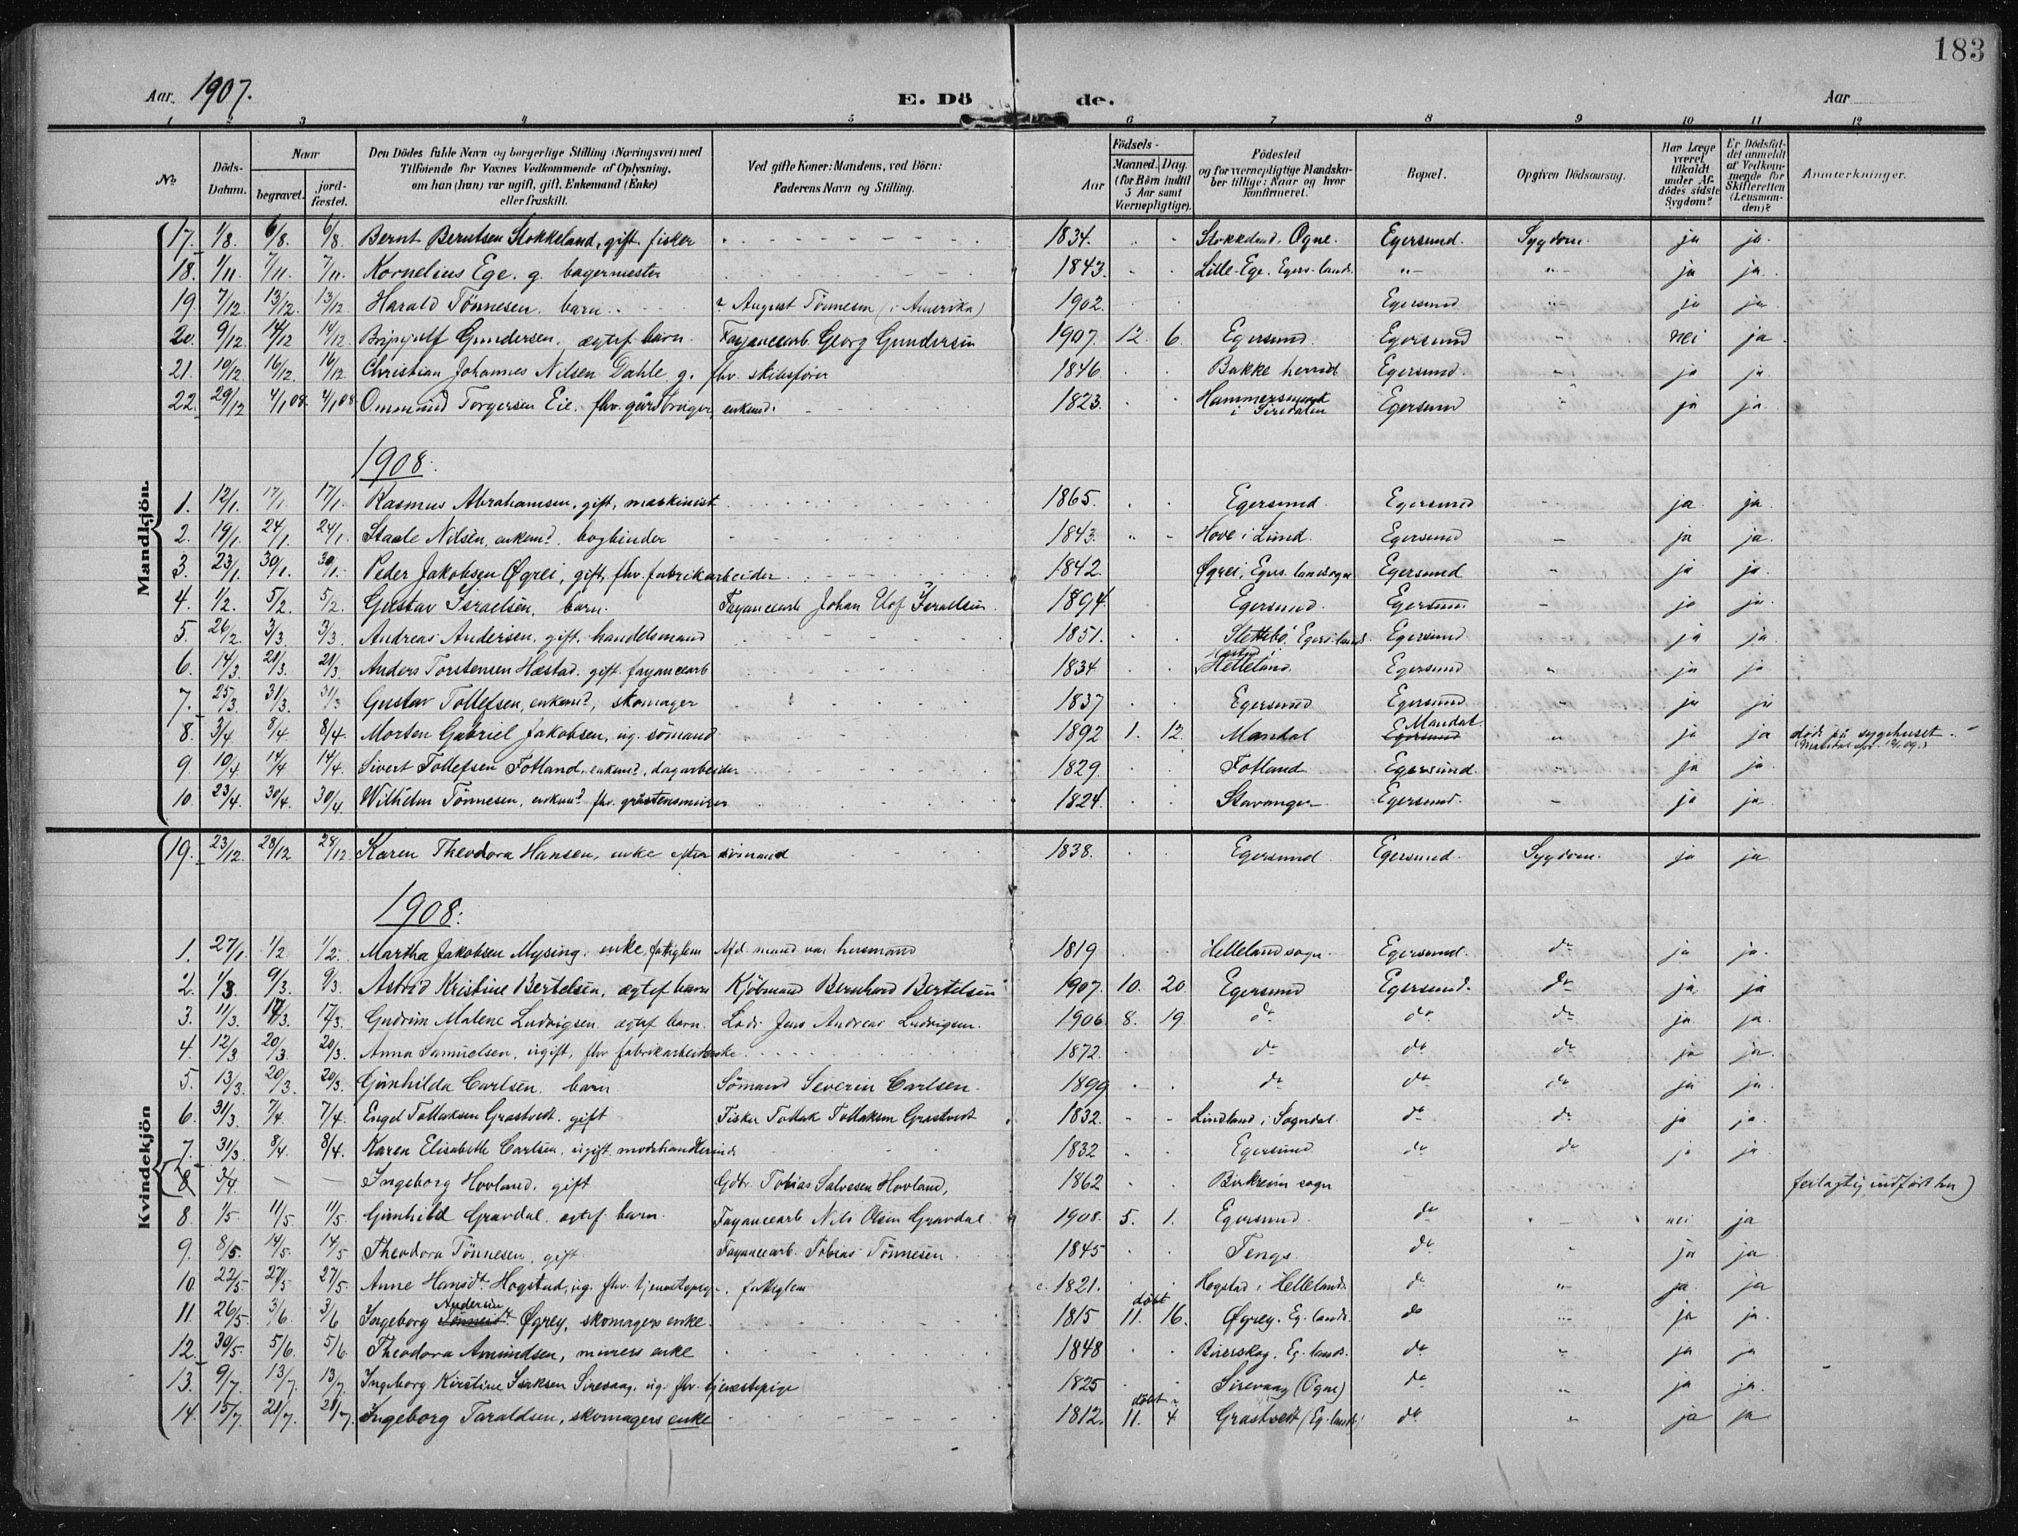 183
Aar. 1907. E. Dö de. Aar
1 2 3 4 5 6 7 8 9 10 11 12
No. Döds-Datum. Naar begravet. jord-fæstet. Den Dödes fulde Navn og borgerlige Stilling (Næringsvei) med Tilföiende for Voxnes Vedkommende af Oplysning, om han (hun) var ugift, gift, Enkemand (Enke) eller fraskilt. Ved gifte Koner: Mandens, ved Börn: Faderens Navn og Stilling. Födsels- Aar Maaned. Dag. (for Börn indtil 5 Aar samt Værnepligtige). Födested og for værnepligtige Mandskaber tillige: Naar og hvor konfirmeret. Bopæl. Opgiven Dödsaarsag. Har Læge været tilkaldt under Afdödes sidste Sygdom? Er Dödsfaldet anmeldt af Vedkommende for Skifteretten (Lensmanden)? Anmærkninger.
Mandkjön.
17. 1/8. 6/8. 6/8 Bernt Berntsen Stokkeland, gift, fisker 1834. Stokkeland, Ogne. Egersund. Sygdom. ja ja.
18. 1/11. 7/11. 7/11. Kornelius Ege. g. bagermester 1843. Lille-Ege. Egers. lands. -"- -"- ja ja.
19. 7/12. 13/12. 13/12 Harald Tönnesen. barn. August Tönnesen (i Amerika) 1902. Egersund -"- ja ja
20. 9/12. 14/12 14/12. Gundersen, ægtef. barn. Fayancearb. Georg Gundersen 1907. 12. 6. Egersund. Egersund " nei ja
21. 10/12. 16/12. 16/12 Christian Johannes Nilsen Dahle g. fhv. skibsfører 1846. Bakke herred Egersund. " ja ja.
22. 29/12 4/1 08. 4/1 08. Ommund Torgersen Eie. fhv. gårdbruger, enkemd. 1823. Hammersmark i Siredalen Egersund ja ja.
1908.
1. 12/1. 17/1 17/1. Rasmus Abrahamsen, gift, maskinist 1865. Egersund. Egersund ja ja.
2. 19/1. 24/1. 24/1. Staale Nilsen, enkemd. bogbinder 1843. Hove i Lund. Egersund ja ja.
3. 23/1. 30/1. 30/1. Peder Jakobsen Øgrei, gift, fhv. fabrikarbeider. 1842. Øgrei, Egers. landsogn Egersund ja ja.
4. 1/2. 5/2. 5/2. Gustav Israelsen, barn. Fayancearb Johan Israelsen. 1894. Egersund. Egersund ja ja.
5. 26/2. 3/3 3/3. Andreas Andersen, gift, handelsmand 1851. Slettebö, Egers. lands. Egersund ja ja.
6. 14/3. 21/3. 21/3 Anders Torstensen Hæstad. gift fayancearb 1834 Helleland. Egersund " ja ja
7. 25/3. 31/3. 31/3 Gustav Tollefsen, enkemd., skomager 1837 Egersund Egersund " ja ja
8. 3/4 8/4 8/4. Morten Gabriel Jakobsen, ug. sömand 1892 1. 12. Mandal Mandal. Egersund " ja ja död på sygehuset.
9. 10/4. 14/4 14/4. Sivert Tollefsen Fotland, enkemd., dagarbeider 1829. Fotland Egersund. " ja ja.
10. 23/4. 30/4. 30/4 Wilhelm Tönnesen, enkemd. fhv. gråstensmurer 1824. Stavanger Egersund. ja ja.
Kvindekjön
19. 23/12. 28/12 28/12. Karen Theodora Hansen, enke efter sömand 1838. Egersund. Egersund. Sygdom. ja ja
1908.
1. 27/1 1/2 1/2. Martha Jakobsen Mysing. enke, fattiglem Afd. mand var husmand 1819 Helleland sogn. Egersund. do ja ja.
2. 1/3 9/3. 9/3. Astrid Kristine Bertelsen, ægtef barn Kjöbmand Bernhard Bertelsen 1907. 10. 20. Egersund Egersund. do ja ja
3. 11/3. 17/3. 17/3. Gudrun Malene Ludvigsen. ægtef barn. Lods Jens Andreas Ludvigsen. 1906. 8. 19. do do do ja ja.
4. 12/3 20/3. 20/3. Anna Samuelsen, ugift, fhv fabrikarbeiderske. 1872. do do do ja ja.
5. 13/3 20/3. 20/3. Gunhilda Carlsen. barn Sömand Severin Carlsen. 1899 do do do ja ja.
6. 31/3. 7/4. 7/4. Engel Tollaksen Grastvedt. gift Fisker Tollak Tollaksen Grastvedt 1832. Lindland i Sogndal. do do ja ja.
7. 31/3 8/4. 8/4. Karen Elisabeth Carlsen, ugift, modehandlerinde 1832 Egersund do do ja ja.
8 3/4. — — Ingeborg Hovland. gift Gdbr. Tobias Salvesen Hovland, 1862 Birkreim sogn feilagtig indført her)
8. 1/5. 11/5. 11/5 Gunhild Gravdal. ægtef. barn. Fayancearb Nils Olsen Gravdal 1908. 5. 1. Egersund. do nei ja
9. 8/5. 14/5. 14/5 Theodora Tönnesen, gift. Fayancearb. Tobias Tönnesen 1845 Tengs. do " ja ja.
10. 22/5. 27/5 27/5. Anne Hansdt. Hogstad, ug. fhv. tjenestepige, fattiglem c. 1821. Hogstad i Helleland do -"- ja. ja
11. 26/5. 3/6 3/6 Ingeborg Andersen Øgrey, skomagers enke. 1815 döbt 11. 16. Øgrey. Eg. lands. do -"- ja ja.
12. 30/5. 5/6 5/6. Theodora Amundsen, murers enke 1848 Eg. lands. do " ja ja
13. 9/7 13/7. 13/7 Ingeborg Kirstine Isaksen Siresaag, ug. fhv. tjenestepige 1825 Sirevaag (Ogne) do " ja ja.
14. 15/7. 21/7. 21/7. Ingeborg Taraldsen, skomagers enke 1812. döbt 11. 4. Grastvedt (Eg. lands) do " ja ja.